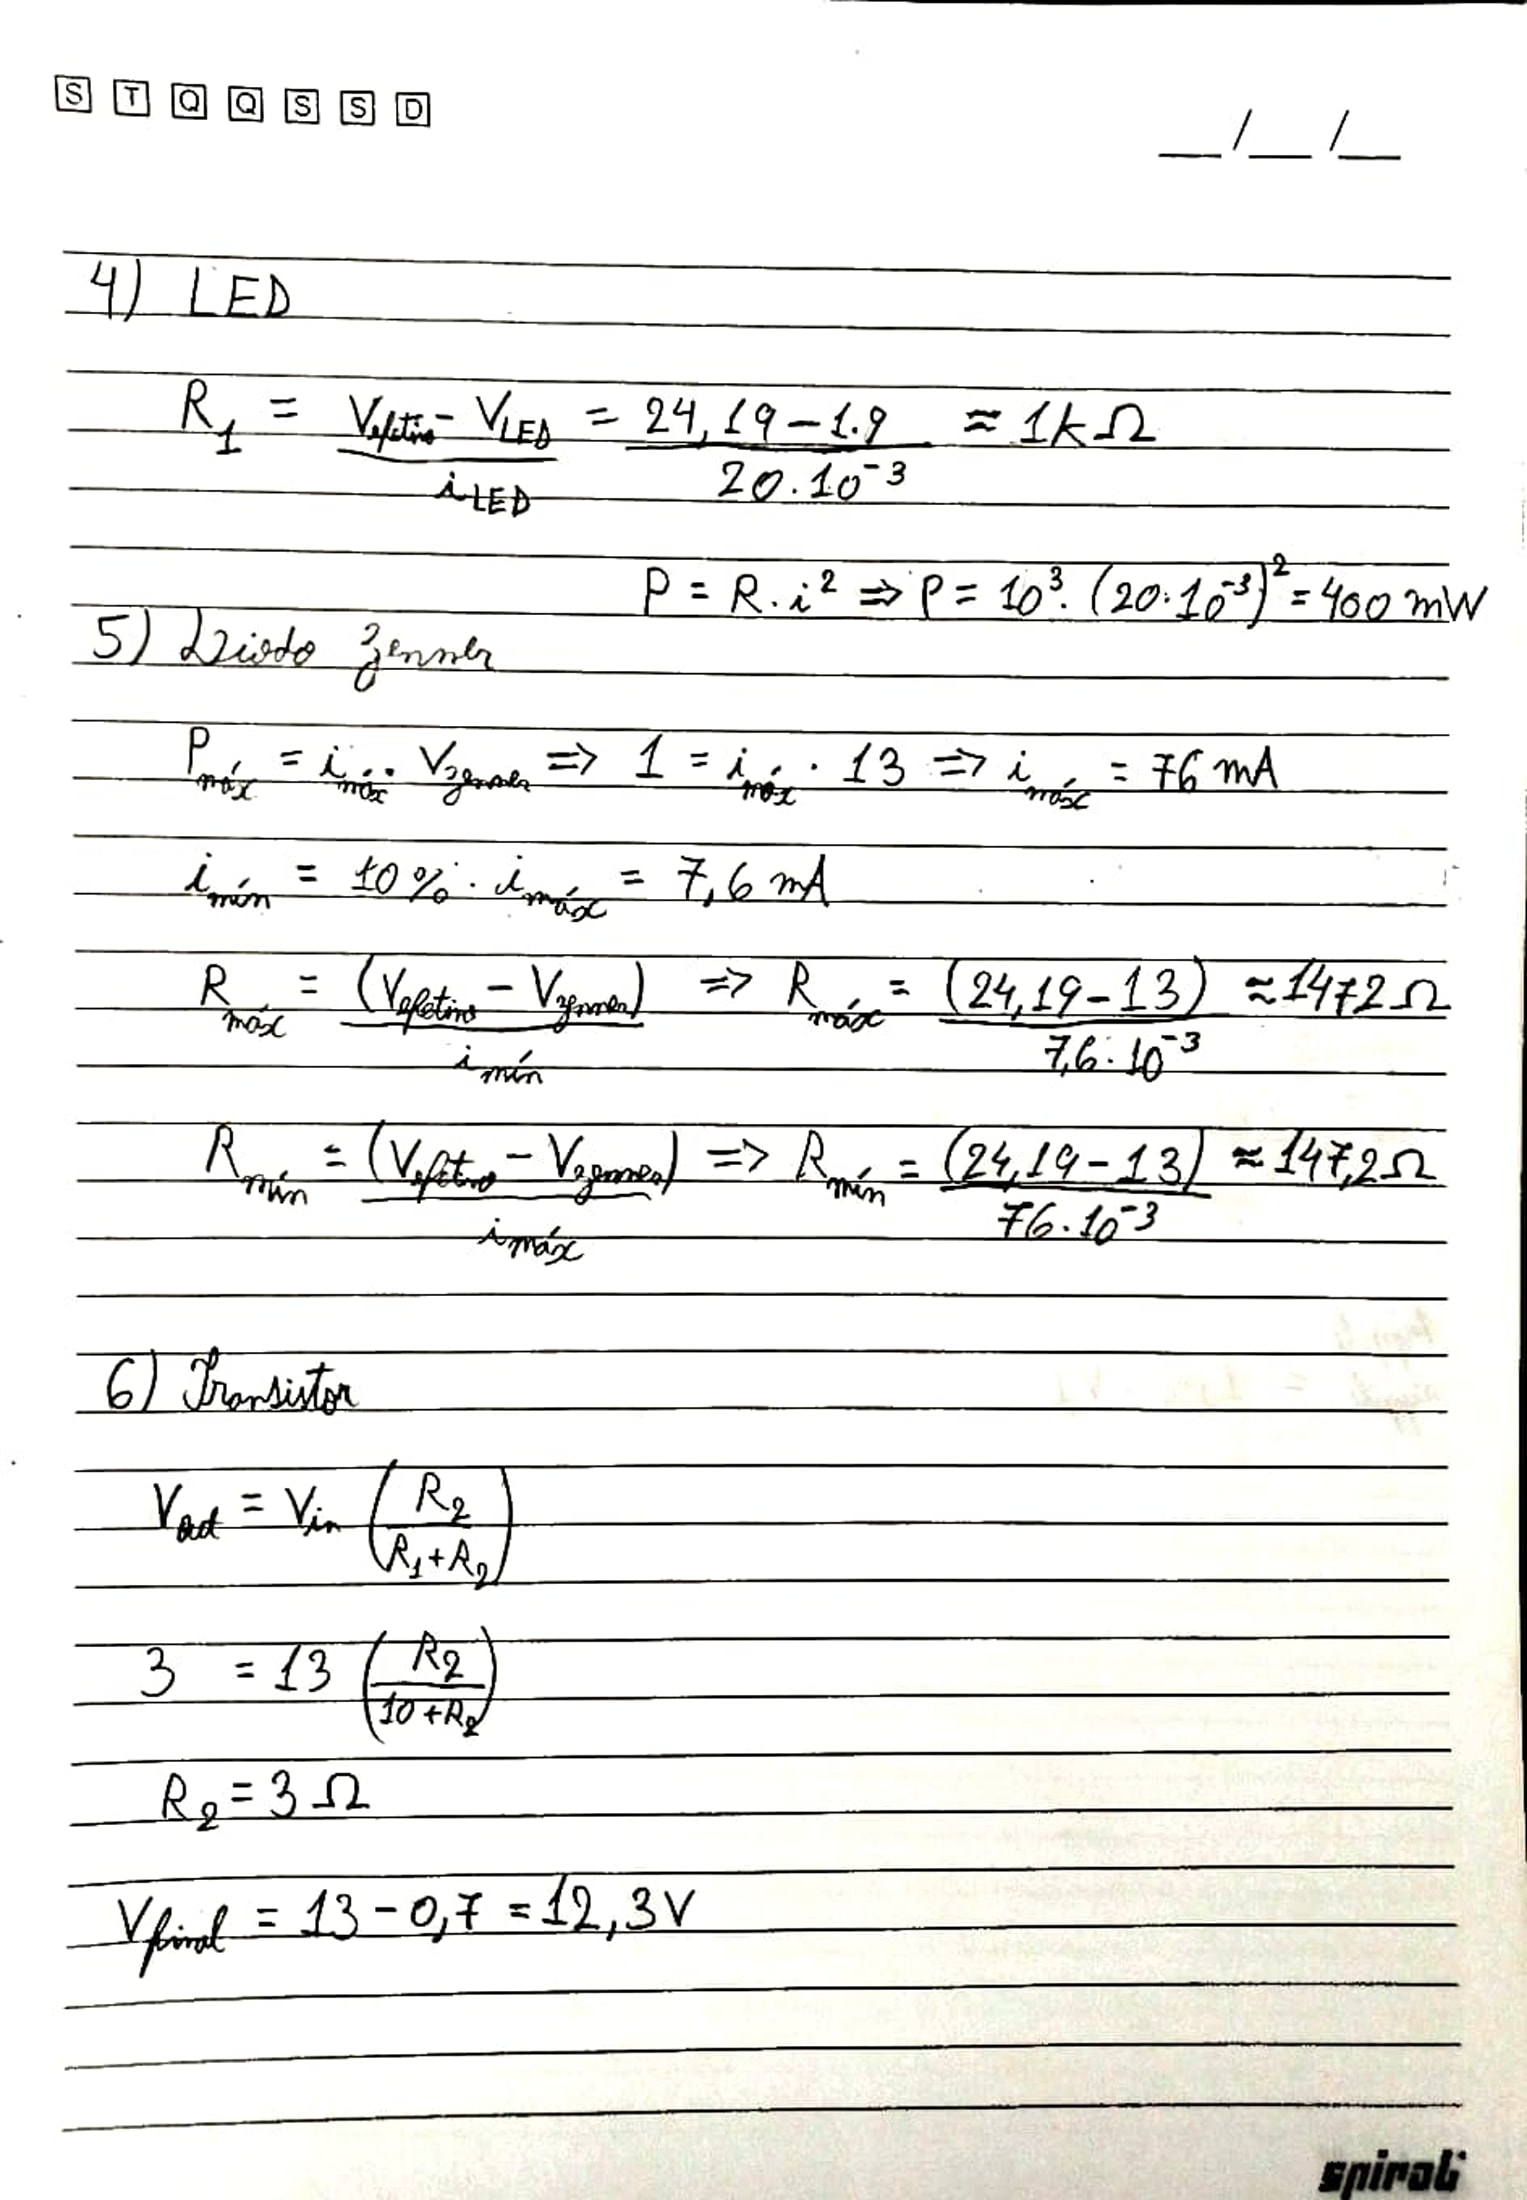 S T Q Q S S D
__/__/__
4) LED
R₁ = (Vefetivo - VLED) / iLED = (24,19 - 1.9) / (20.10⁻³) ≈ 1kΩ
P = R.i² ⇒ P = 10³.(20.10⁻³)² = 400 mW
5) Diodo zenner
Pmáx = imáx. Vzenner ⇒ 1 = imáx . 13 ⇒ imáx = 76 mA
imín = 10% . imáx = 7,6 mA
Rmáx = (Vefetivo - Vzenner) / imín ⇒ Rmáx = (24,19 - 13) / (7,6.10⁻³) ≈ 1472 Ω
Rmín = (Vefetivo - Vzenner) / imáx ⇒ Rmín = (24,19 - 13) / (76.10⁻³) ≈ 147,2 Ω
6) Transistor
V = Vin (R₂ / (R₁ + R₂))
3 = 13 (R₂ / (10 + R₂))
R₂ = 3 Ω
Vfinal = 13 - 0,7 = 12,3V
spiral